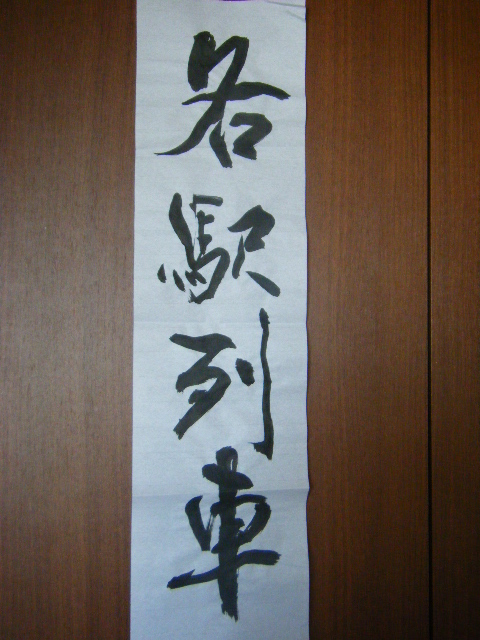 各駅列車